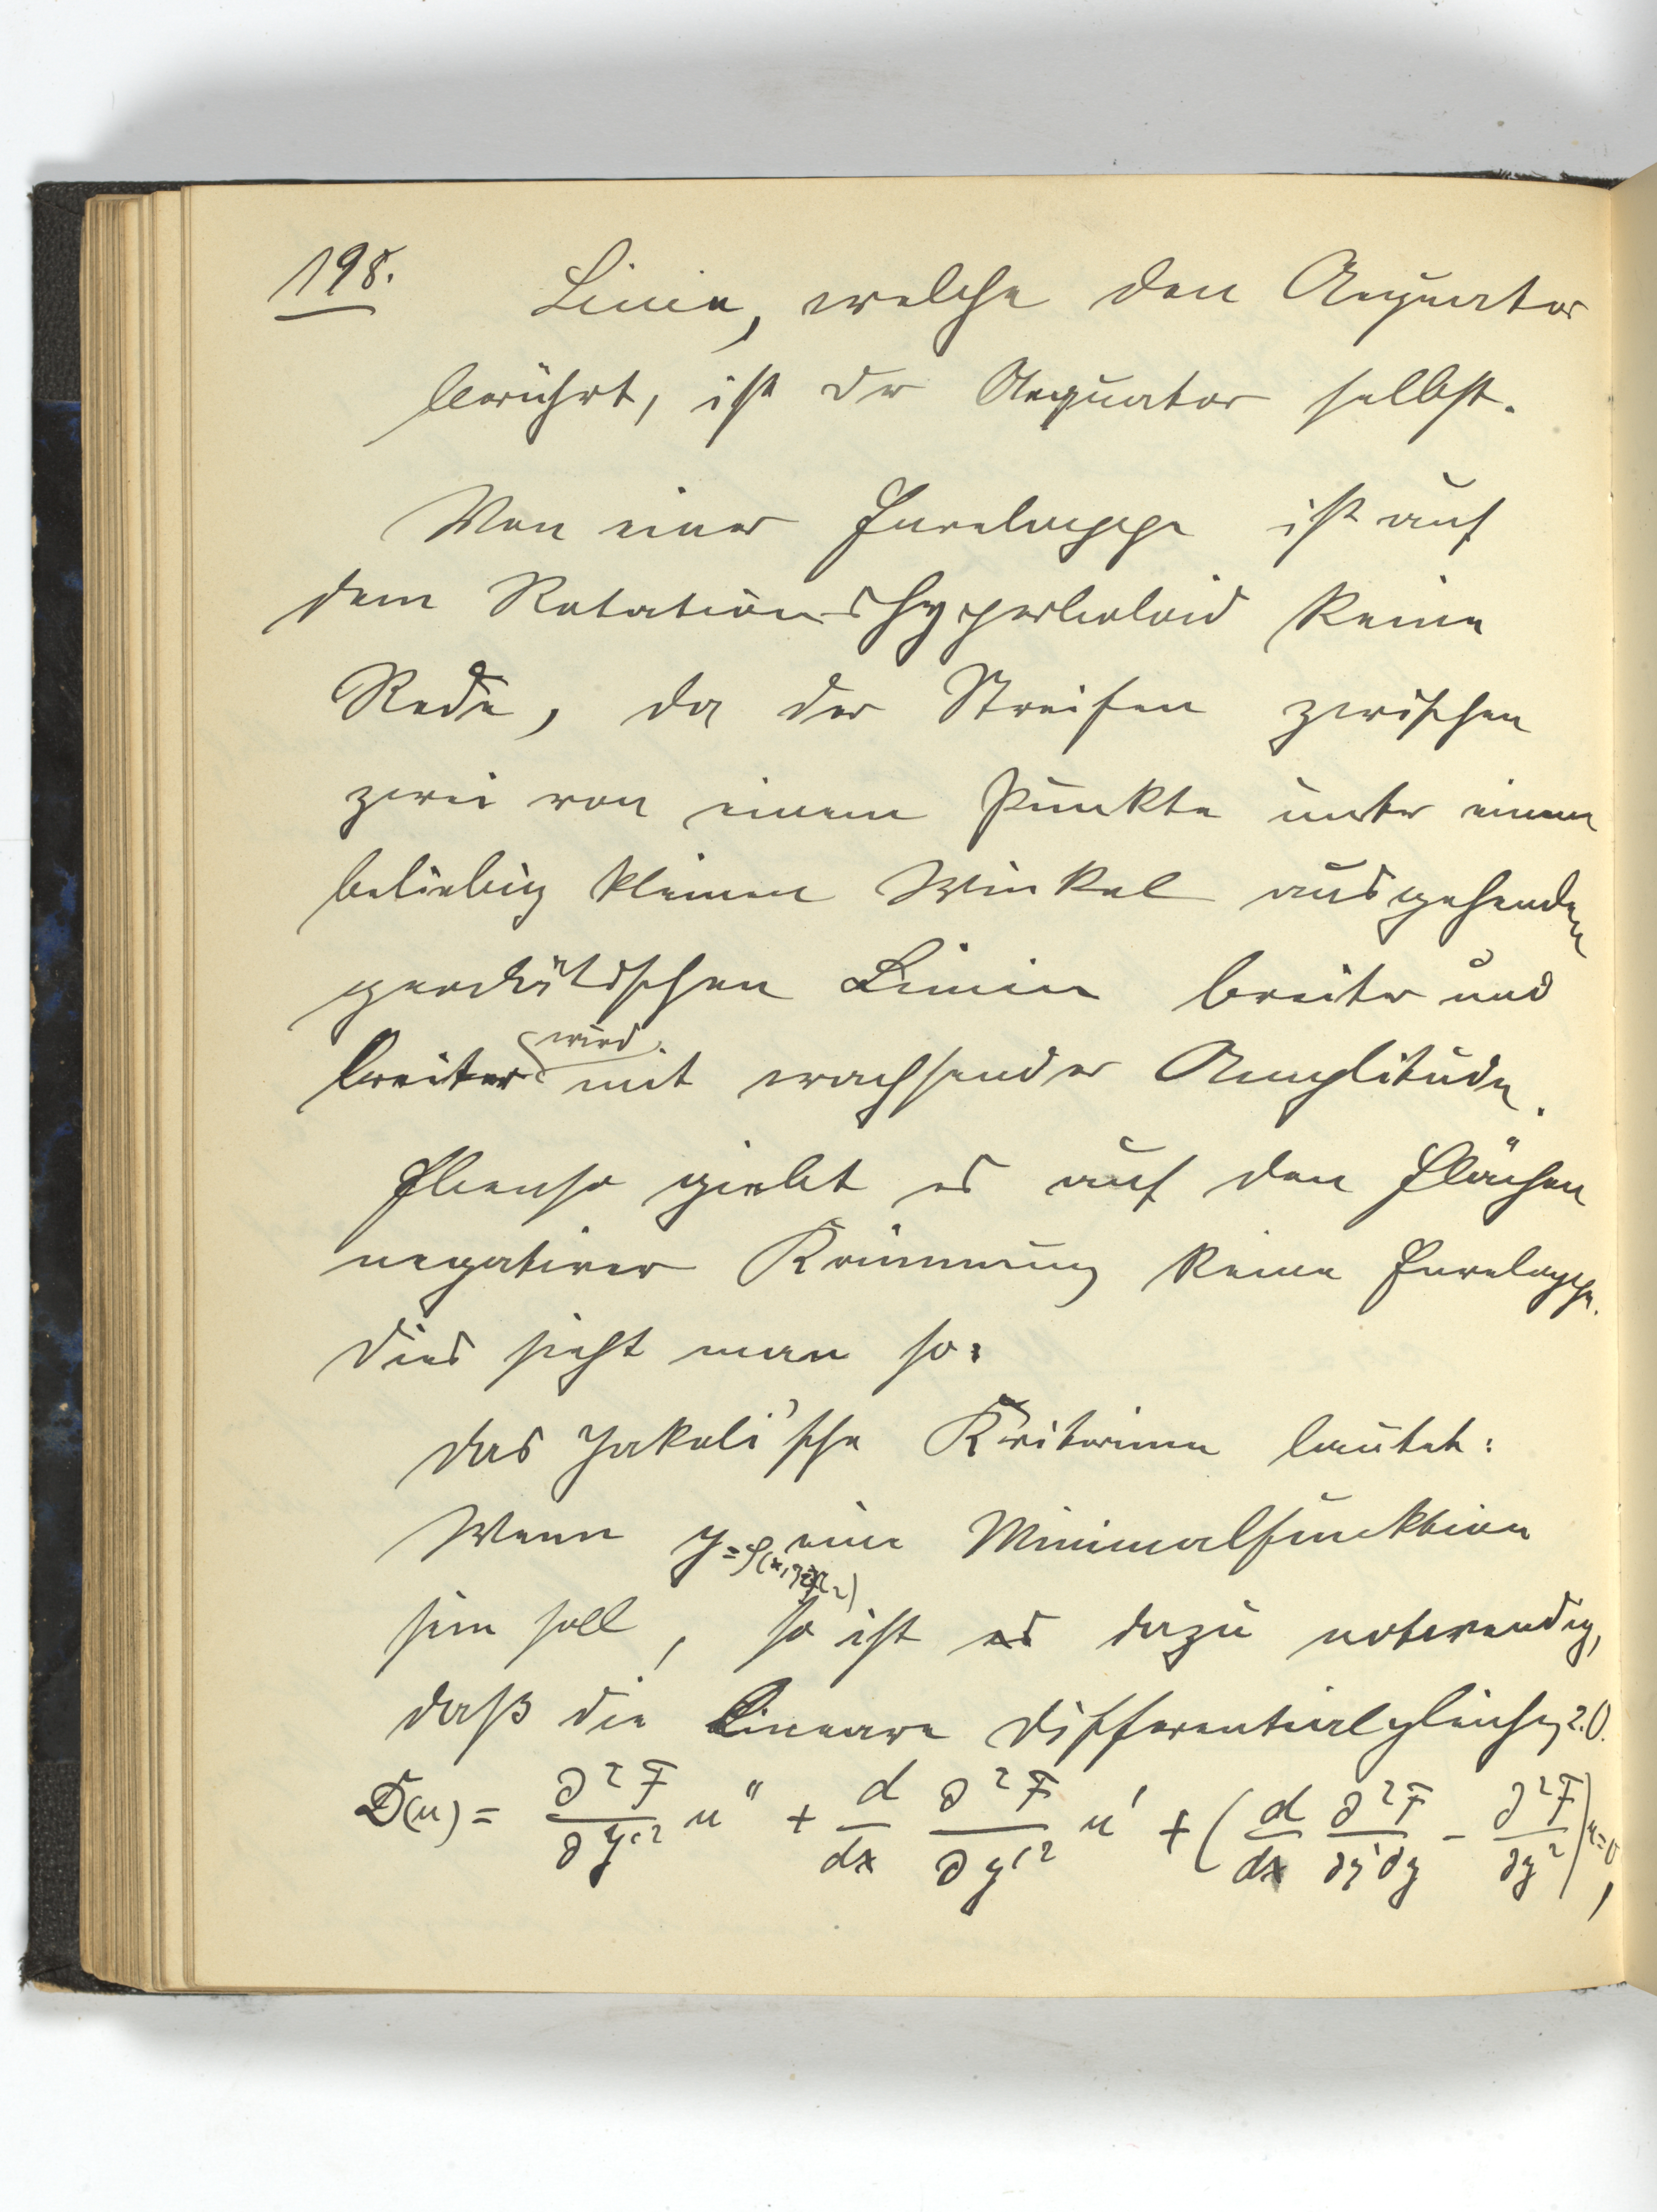 198. Linie, welche den Aequator
berührt, ist der Aequator selbst.
Von einer Enveloppe ist auf
dem Rotationshyperboloid keine
Rede, da der Streifen zwischen
zwei von einem Punkte unter einem
beliebig kleinen Winkel ausgehenden
geodätischen Linien breiter und
breiter wird mit wachsender Amplitude.
Ebenso giebt es auf den Flächen
negativer Krümmung keine Enveloppe.
Dies sieht man so:
Das Jakobi'sche Kriterium lautet:
Wenn y=φ(x, eine Minimalfunktion
sein soll, so ist es dazu notwendig,
daß die lineare Differentialgleichg 2.O.
D(u) = ∂²F/∂y'² u'' + d/dx ∂²F/∂y'² u' + (d/dx ∂²F/∂y'∂y − ∂²F/∂y²)u=0,